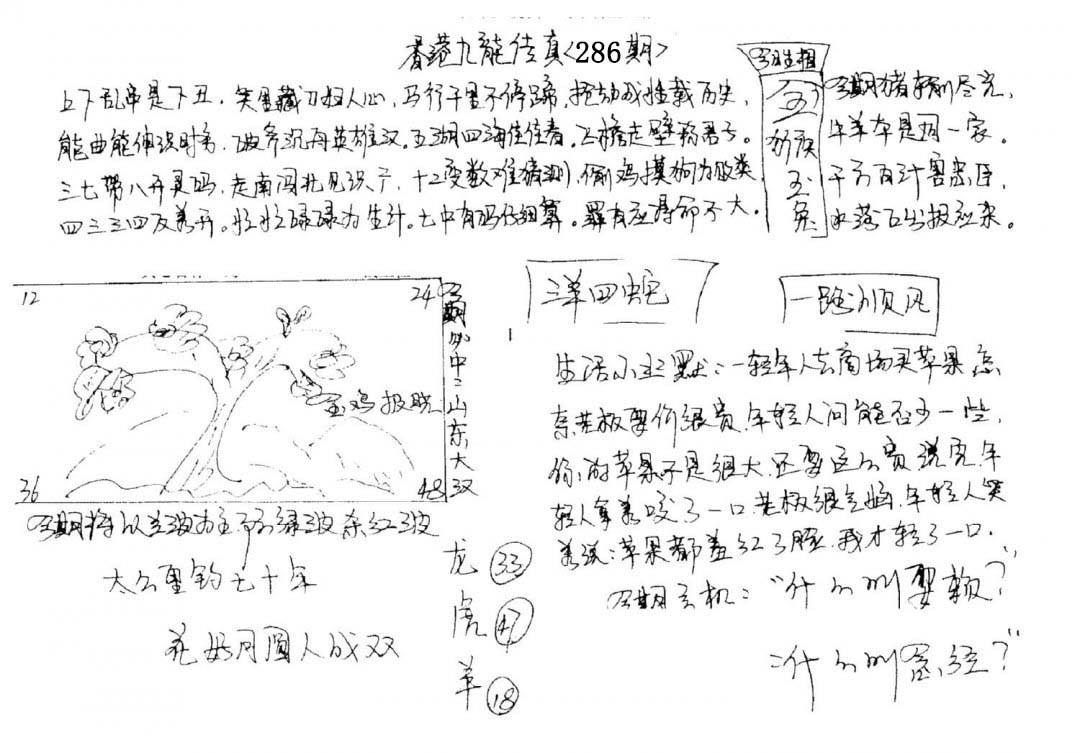 香港九龍传真<286期>
上下乱串是下丑，笑里藏刀奴人心，马行千里不停蹄，
能曲能伸识时务，破斧沉舟英雄汉，五湖四海住住春，
三七带八开灵码，走南闯北见识广，十二变数难猜测，偷鸡摸狗为败类
四三三四反着开。忙忙碌碌为生计。七中有码仔细算。罪有应得命不大。
今期猪
牛羊本是同一家。
千方百计害忠臣，
水落石出报应来。
玉兔
12
24
36
48
金鸡报晓
今期必中：山东大汉
三羊四蛇
一路顺风
生活小幽默：一轻年人去商场买苹果，怎
奈老板要价很贵，年轻人问能否少一些，
你的苹果不是很大，还要这么贵，说完年
轻人拿着咬了一口，老板很气恼，年轻人笑
着说：苹果都羞红了脸，我才轻了一口。
今期玄机："什么叫耍赖？"
"什么叫
今期将以兰波为主 绿波杂红波
太公垂钓七十年
花好月圆人成双
龙 33
虎 47
羊 18